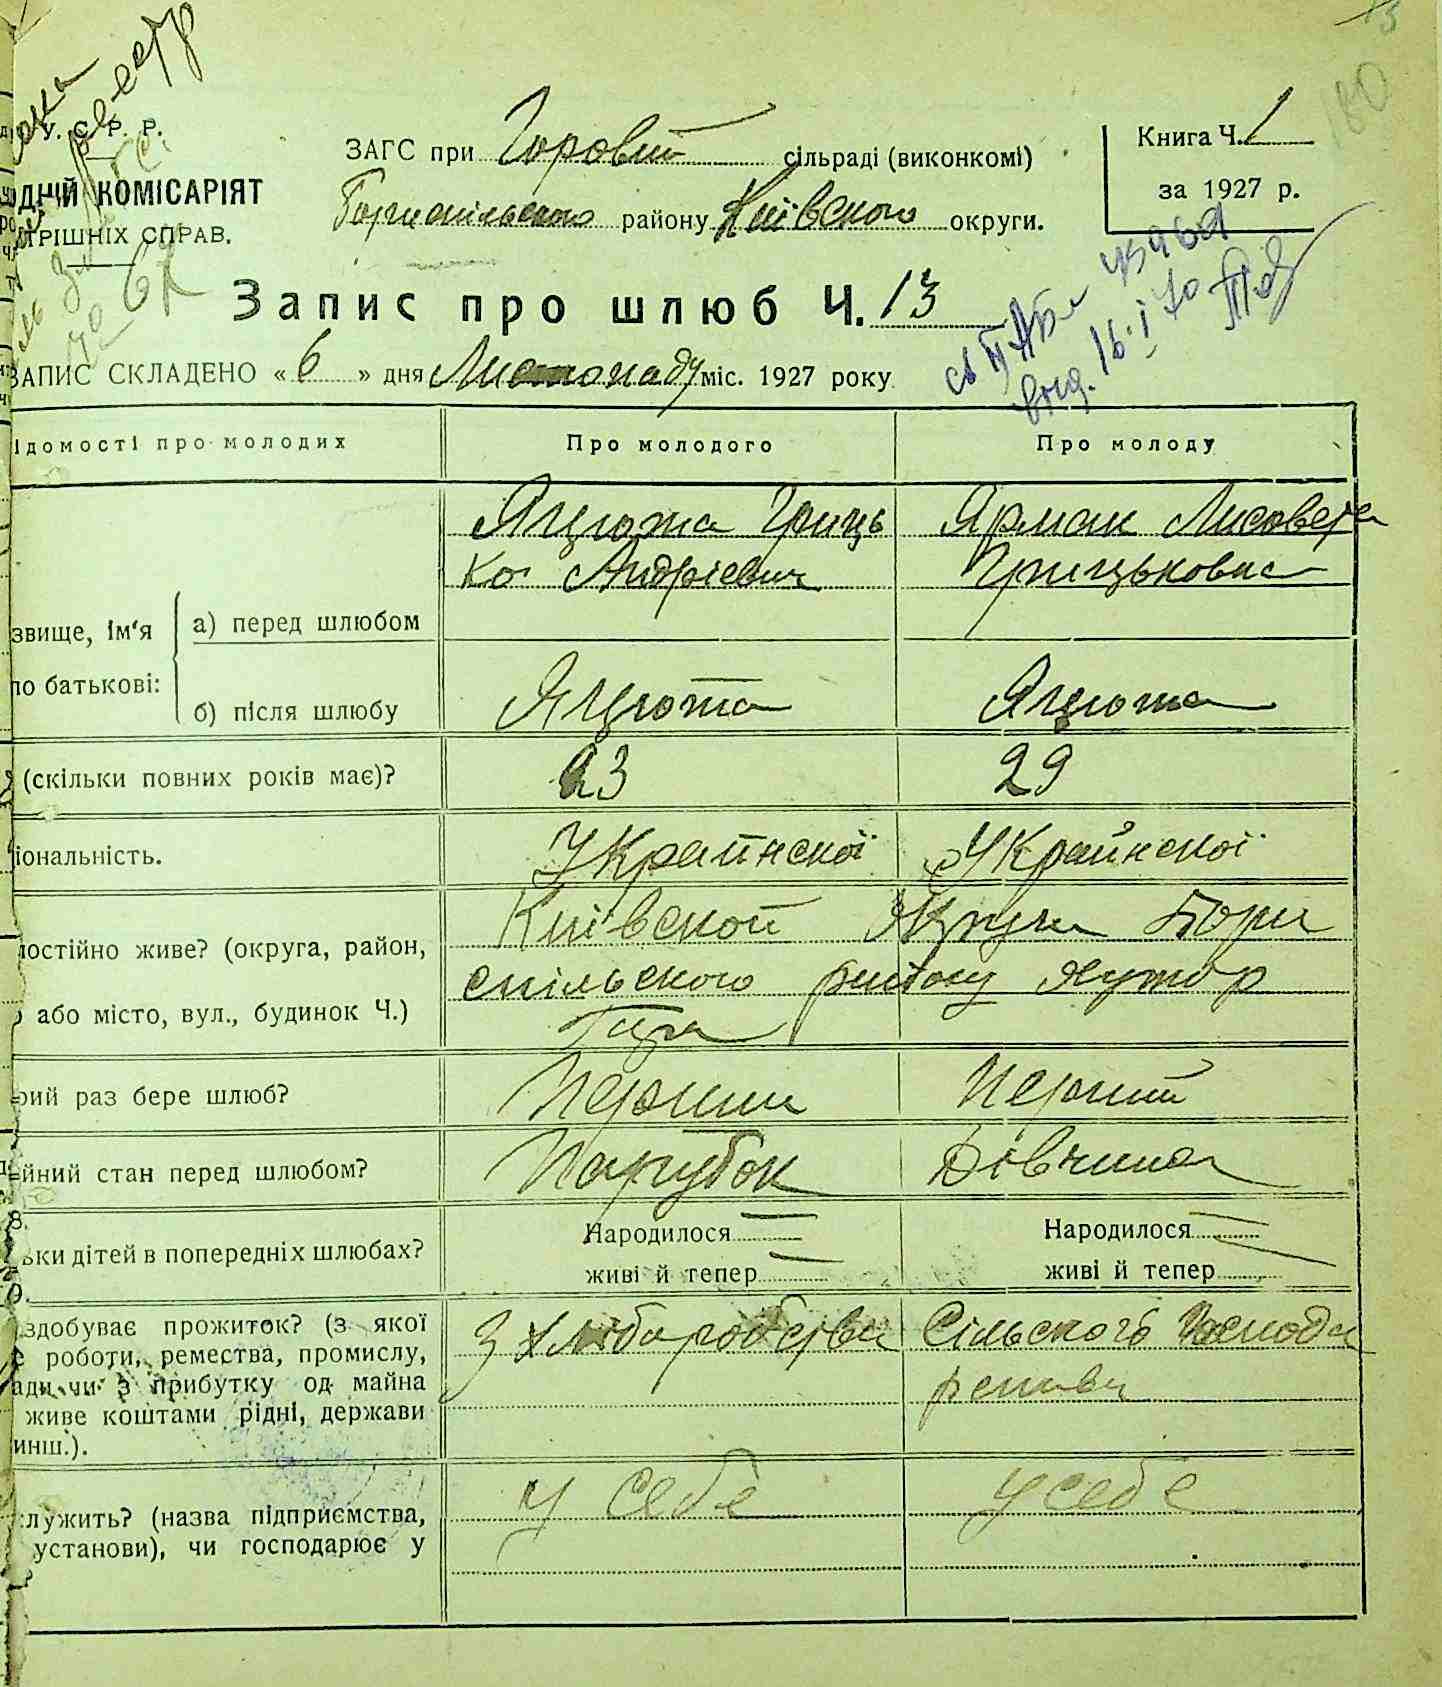 У. С. Р. Р.
ОДНІЙ КОМІСАРІЯТ
ТРІШНІХ СПРАВ.
ЗАГС при Горовій сільраді (виконкомі)
Бориспільского району Київского округи.
Книга Ч. 1
за 1927 р.
Запис про шлюб Ч. 13
ЗАПИС СКЛАДЕНО « 6 » дня Листопаду міс. 1927 року
ідомості про молодих Про молодого Про молоду
Яцюта Гриць Ярмак Лисовета
ко Андрієвич Грицьковна
звище, ім'я а) перед шлюбом
по батькові:
б) після шлюбу Яцюта Яцюта
(скільки повних років має)? 23 29
іональність. Украінскої Украінскої
Київской Округи Бори
постійно живе? (округа, район,
спільского району Хутор
або місто, вул., будинок Ч.)
Гора
рий раз бере шлюб? Перший Перший
ійний стан перед шлюбом? Парубок Дівчина
8. Народилося Народилося
ьки дітей в попередніх шлюбах?
живі й тепер живі й тепер
9.
здобуває прожиток? (з якої З хліборобства Сільского Господа
роботи, ремества, промислу,
ади чи з прибутку од майна рства
живе коштами рідні, держави
инш.).
у себе у себе
служить? (назва підприємства,
установи), чи господарює у